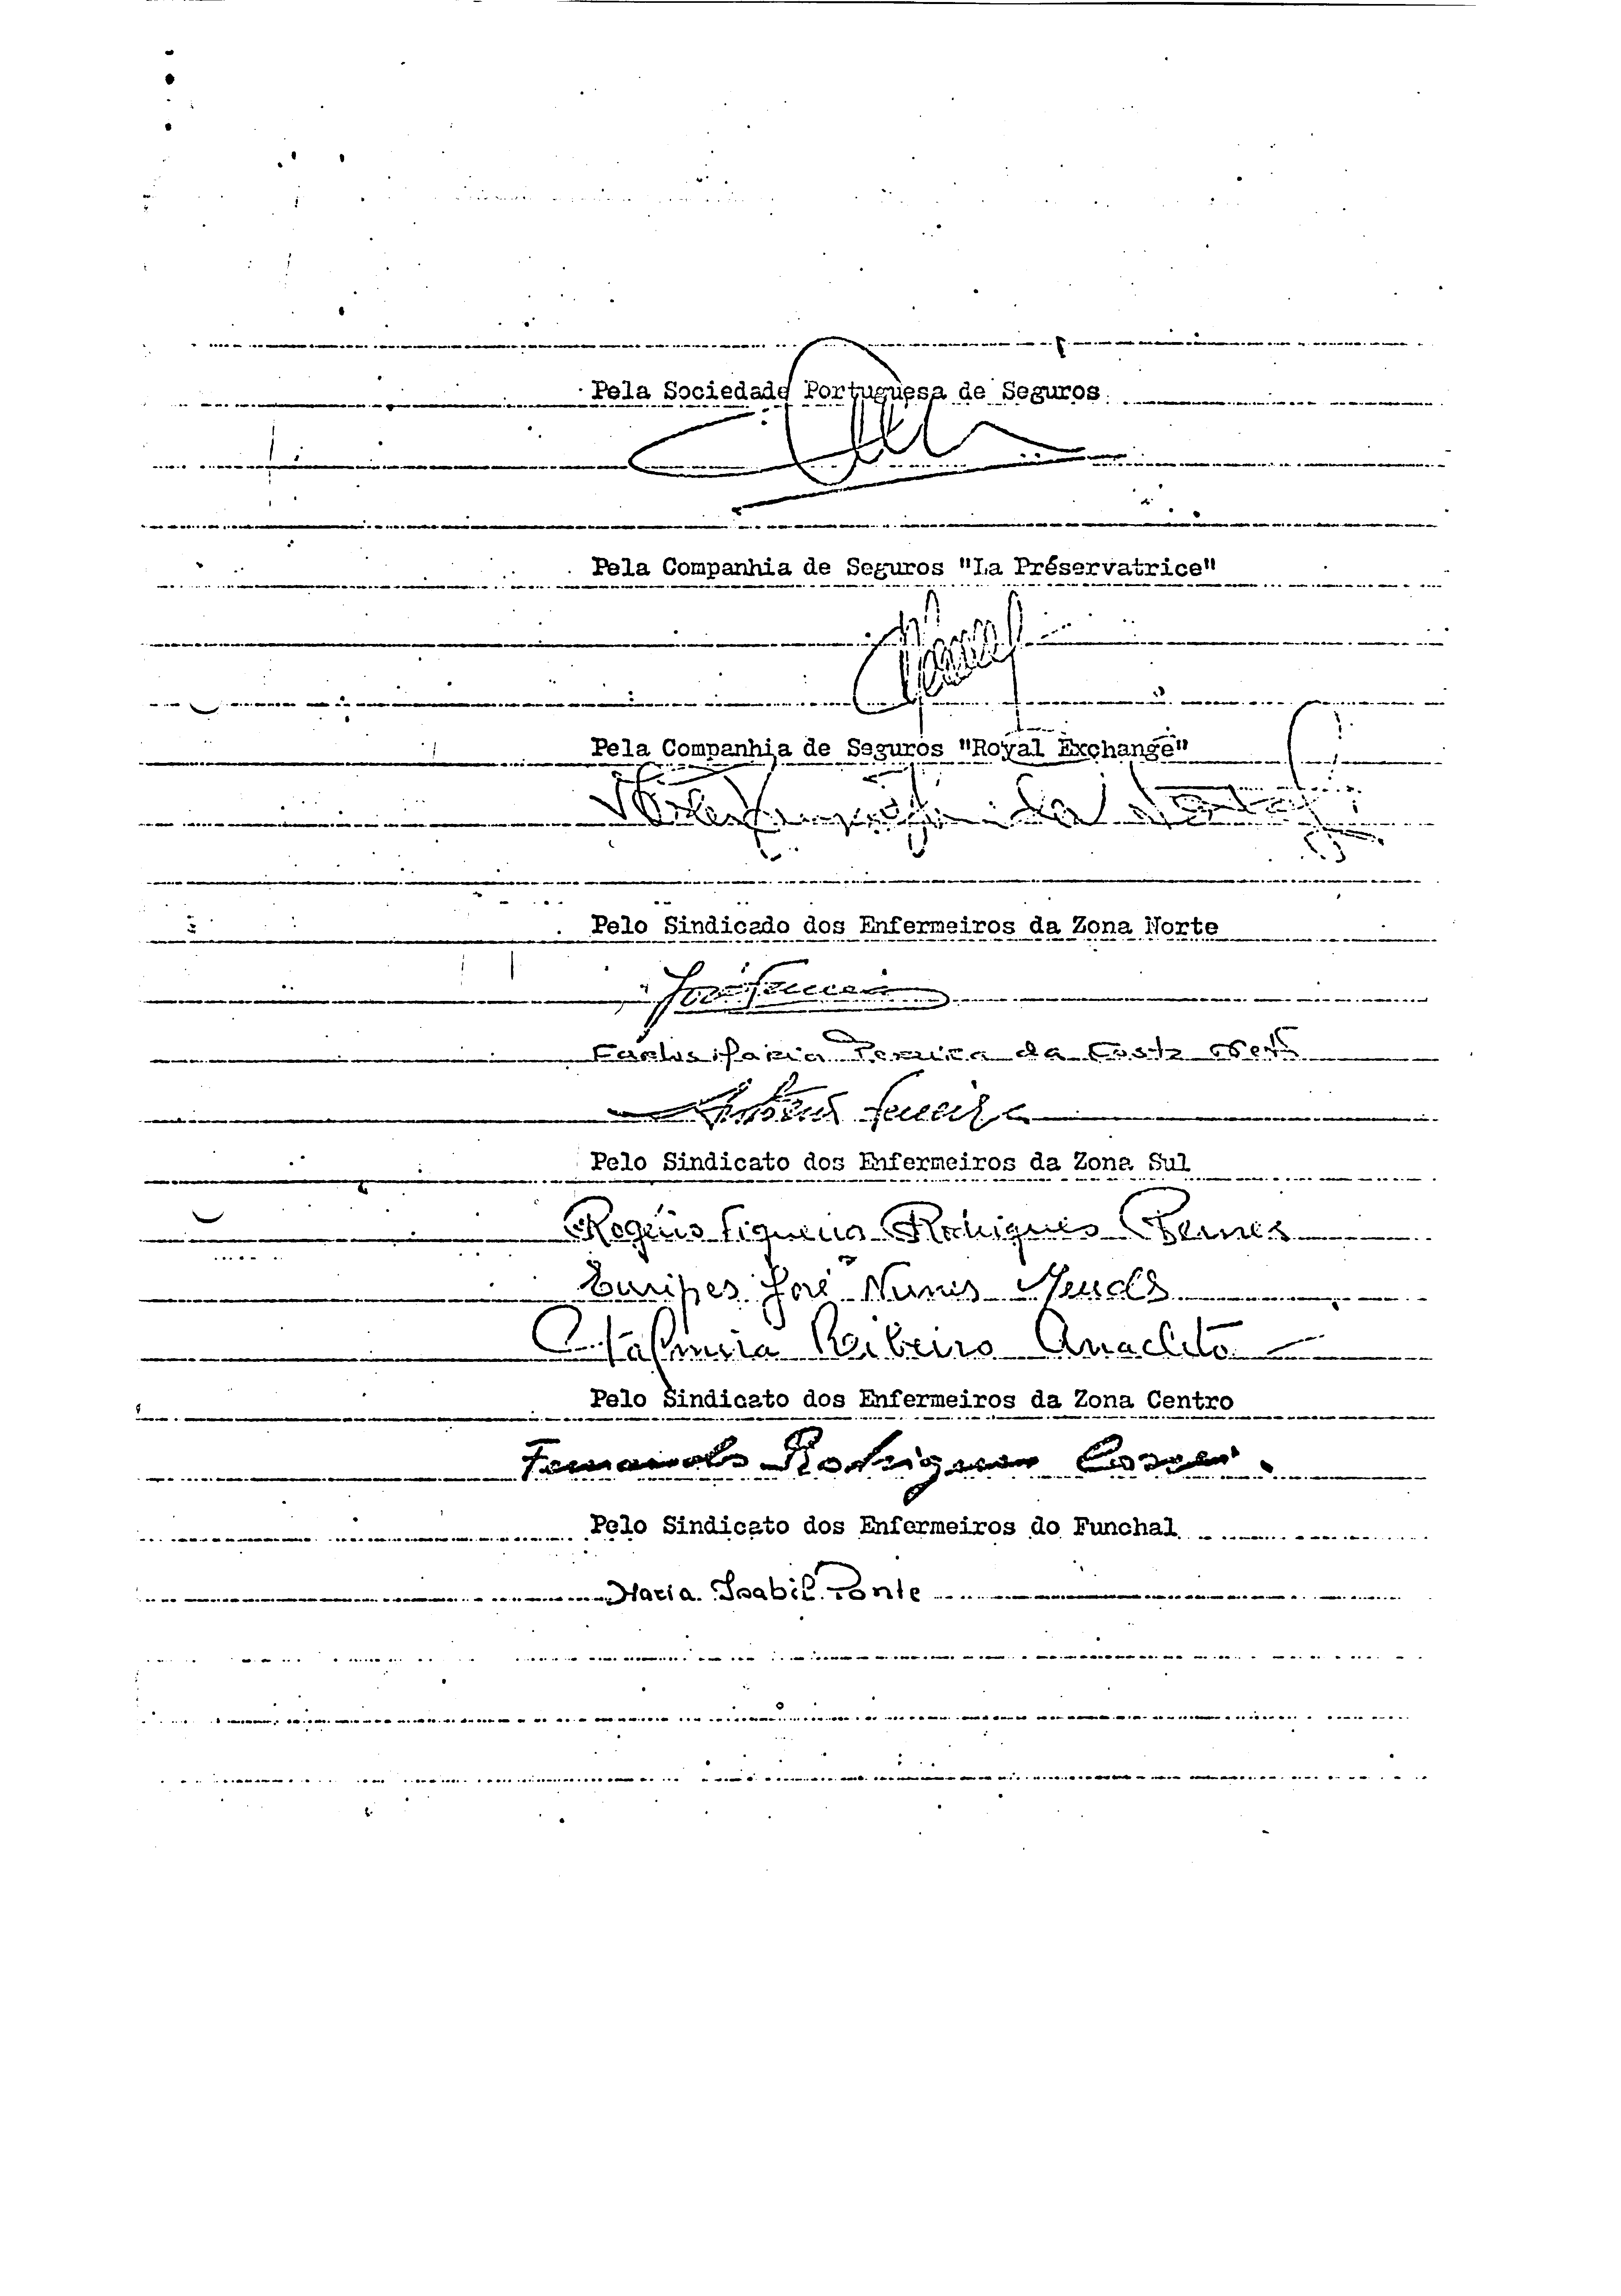 Pela Sociedade Portuguesa de Seguros
Pela Companhia de Seguros "La Préservatrice"
Pela Companhia de Seguros "Royal Exchange"
Pelo Sindicado dos Enfermeiros da Zona Norte
José Ferreira
Carlos Maria Pereira da Costa
António Ferreira
Pelo Sindicato dos Enfermeiros da Zona Sul
Rogério Figueira Rodrigues Pernes
Euripes José Nunes Mendes
Ribeiro Anacleto
Pelo Sindicato dos Enfermeiros da Zona Centro
Fernando Rodrigues Correia
Pelo Sindicato dos Enfermeiros do Funchal
Maria Isabel Ponte